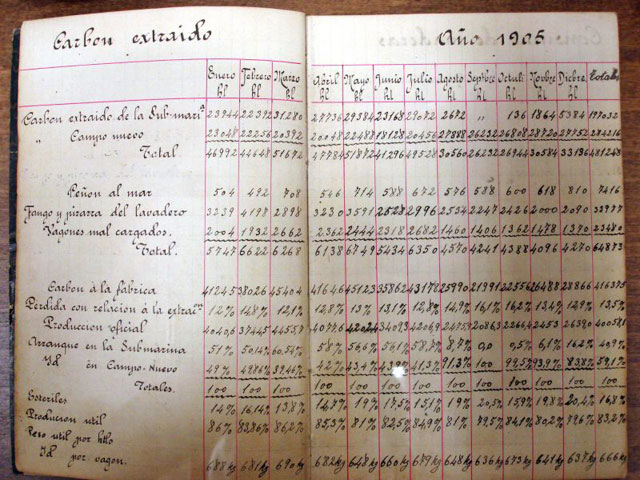 Carbon extraido Año 1905
Enero Febrero Marzo Abril Mayo Junio Julio Agosto Sepbre Octub. Novbre Dicbre. Totales
hl hl hl hl hl hl hl hl hl hl hl hl
Carbon extraido de la Submarina 23944 22392 31280 27736 29384 23168 29072 2672 " 136 1864 5384 197032
" Campo nuevo 23048 22256 20392 20048 22488 18128 20456 27888 26232 26808 28720 27752 284216
Total 46992 44648 51672 47784 51872 41296 49528 30560 26232 26944 30584 33136 481248
Peñon al mar 504 492 708 546 714 588 672 576 588 600 618 810 7416
Fango y pizarra del lavadero 3239 4198 2898 3230 3591 2528 2996 2534 2247 2426 2000 2090 33977
Vagones mal cargados. 2004 1932 2662 2362 2444 2318 2682 1460 1406 1362 1478 1370 23480
Total. 5747 6622 6268 6138 6749 5434 6350 4570 4241 4388 4096 4270 64873
Carbon á la fábrica 41245 38026 45404 41646 45123 35862 43178 25990 21991 22556 26488 28866 416375
Perdida con relacion á la extraccn 12% 14,8% 12,1% 12,8% 13% 13,1% 12,8% 14,9% 16,1% 16,2% 13,4% 12,9% 13,5%
Produccion oficial 40406 37445 44557 40776
Arranque en la Submarina 51% 50,14% 60,54% 58% 56,6% 56,1% 58,7% 8,7% 0,0 0,5% 6,1% 16,2% 40,9%
Id en Campo-Nuevo 49% 49,86% 39,46% 42% 43,4% 43,9% 41,3% 91,3% 100 99,5% 93,9% 83,8% 59,1%
Totales. 100 100 100 100 100 100 100 100 100 100 100 100 100
Esteriles 14% 16,14% 13,8% 14,7% 19% 17,5% 15,1% 19% 20,5% 15,9% 19,8% 20,4% 16,8%
Producion util 86% 83,86% 86,2% 85,3% 81% 82,5% 84,9% 81% 79,5% 84,1% 80,2% 79,6% 83,2%
Peso util por htlo
Id por vagon. 688 kg 681 kg 690 kg 682 kg 648 kg 660 kg 679 kg 648 kg 636 kg 673 kg 641 kg 637 kg 666 kg